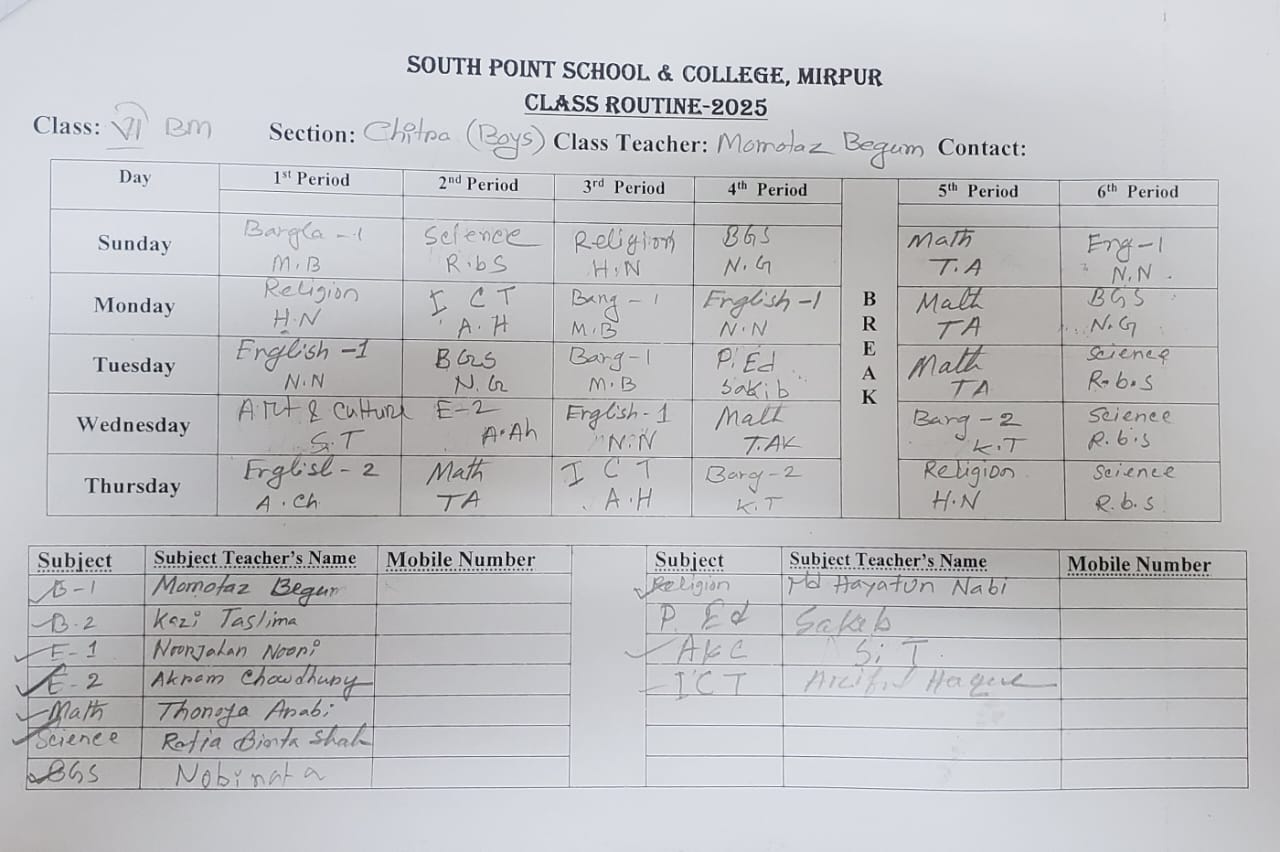 SOUTH POINT SCHOOL & COLLEGE, MIRPUR
CLASS ROUTINE-2025
Class: VI BM Section: Chitra (Boys) Class Teacher: Momotaz Begum Contact:
Day 1st Period 2nd Period 3rd Period 4th Period BREAK 5th Period 6th Period
Sunday Bangla -1 Science Religion BGS Math Eng-1
M.B R.b.S H.N N.G T.A N.N.
Monday Religion I C T Bang - 1 English -1 Math BGS
H.N A.H M.B N.N TA N.G
Tuesday English -1 BGS Bang-1 P.Ed Math Science
N.N N.G M.B Sakib TA R.b.S
Wednesday Art & Culture E-2 English-1 Math Bang-2 Science
S.T A.Ah N.N T.AK K.T R.b.s
Thursday English-2 Math I C T Bang-2 Religion Science
A.Ch TA A.H K.T H.N R.b.s
Subject Subject Teacher's Name Mobile Number Subject Subject Teacher's Name Mobile Number
B-1 Momotaz Begum Religion Md Hayatun Nabi
B-2 Kazi Taslima P. Ed Sakib
E-1 Noorjahan Noori A&C S.T
E-2 Akram Chowdhury ICT Haque
Math Thonoya Arabi
Science Rafia Binta Shah
BGS